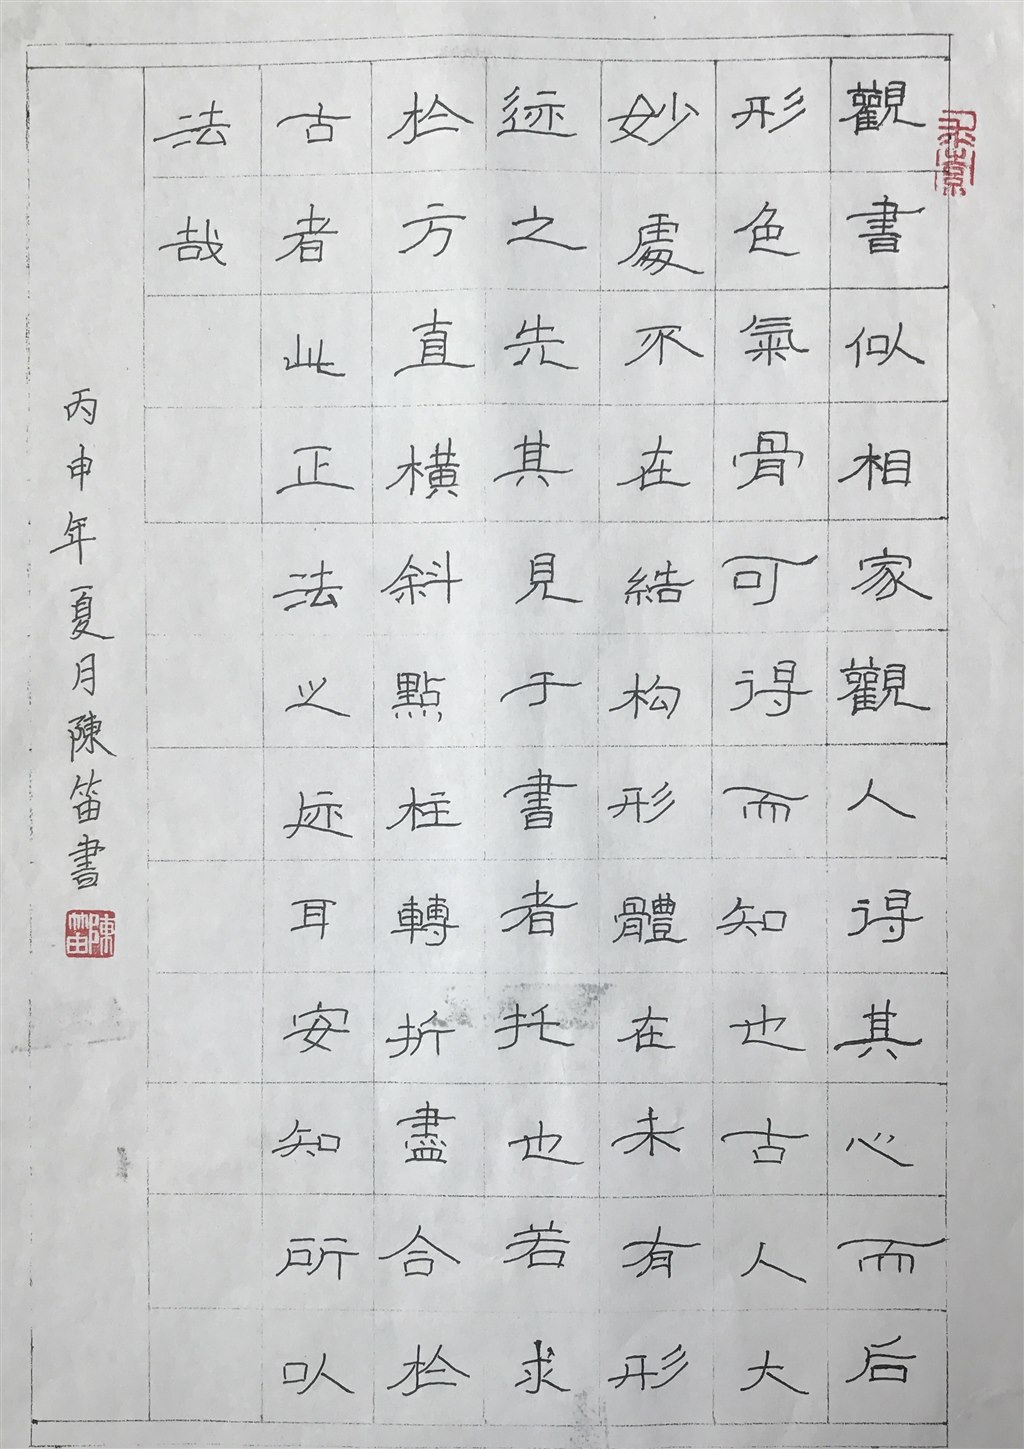 觀書似相家觀人得其心而后
形色氣骨可得而知也古人大
妙處不在結构形體在未有形
迹之先其見于書者托也若求
扵方直橫斜點柱轉折盡合扵
古者此正法之迹耳安知所以
法哉
丙申年夏月陳笛書
陳笛